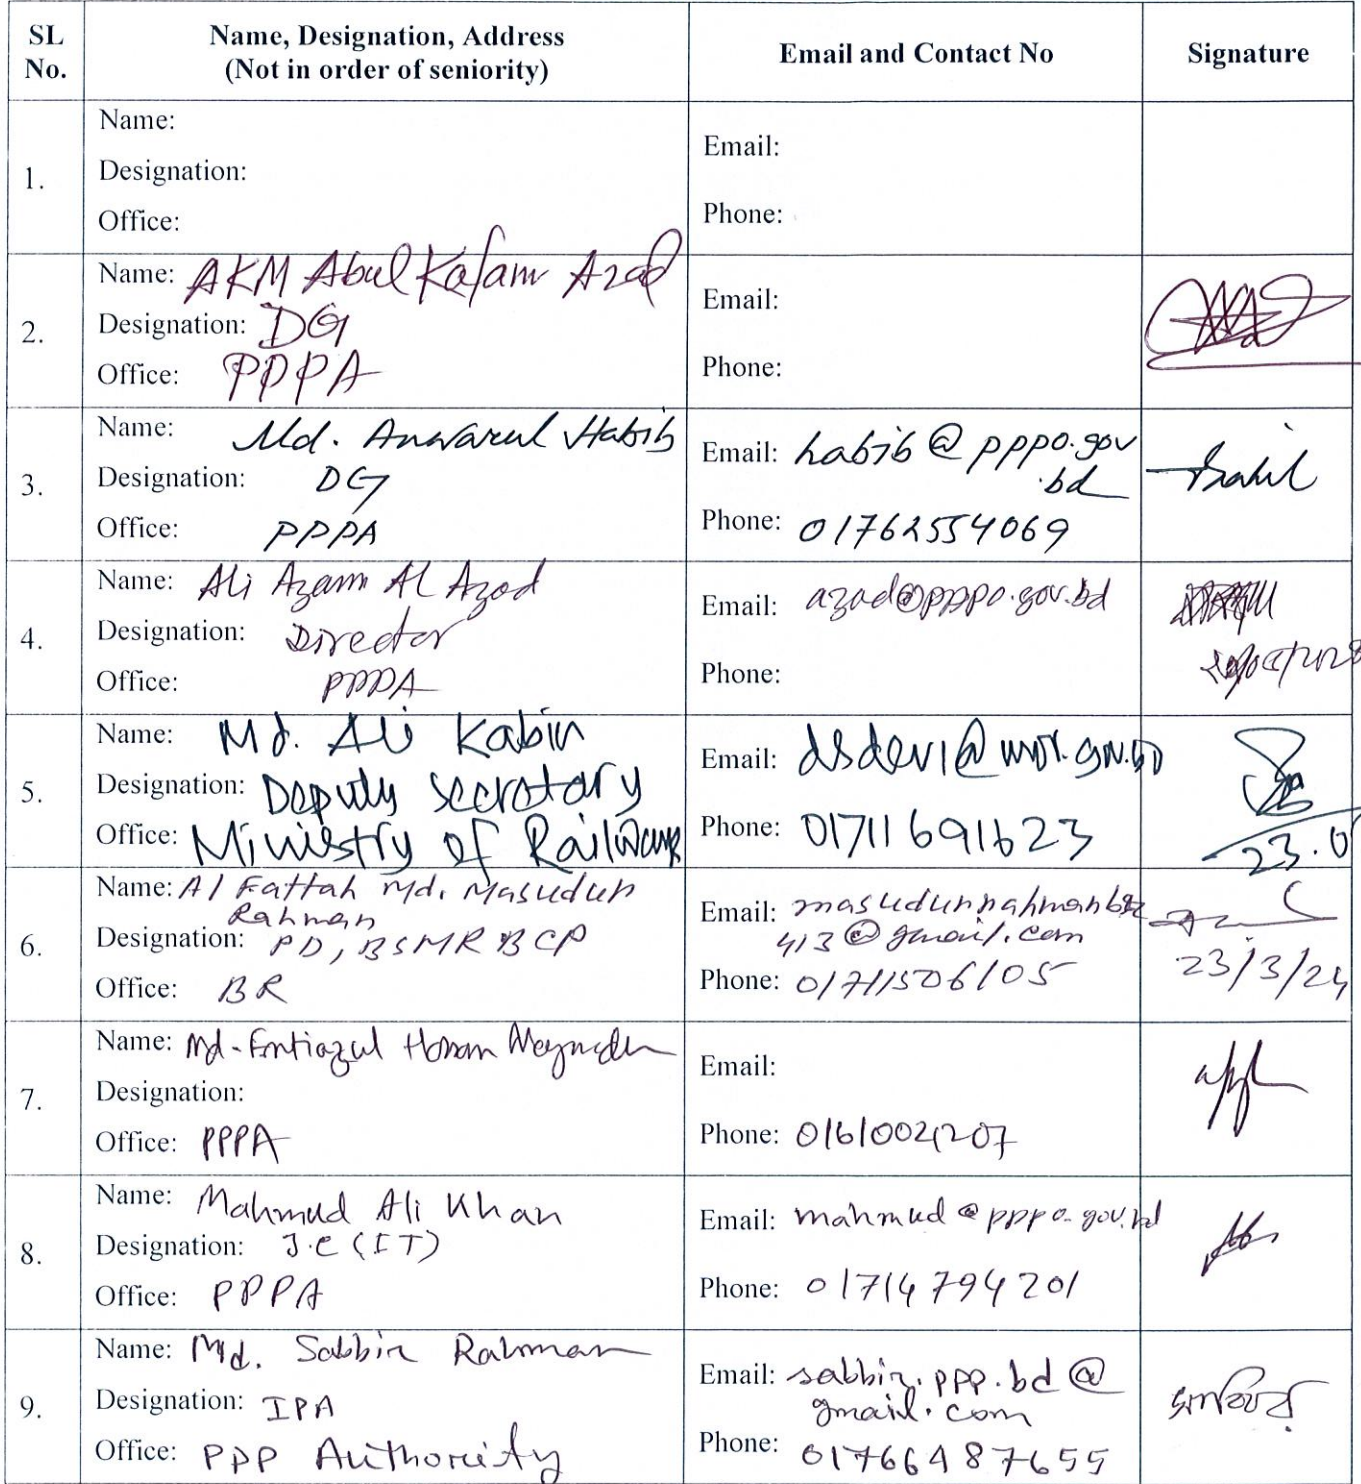 SL No.
Name, Designation, Address
(Not in order of seniority)
Email and Contact No
Signature
1.
Name:
Designation:
Office:
Email:
Phone:
2.
Name: AKM Abul Kalam Azad
Designation: DG
Office: PPPA
Email:
Phone:
3.
Name: Md. Anwarul Habib
Designation: DG
Office: PPPA
Email: habib@pppo.gov
.bd
Phone: 01762554069
4.
Name: Ali Azam Al Azad
Designation: Director
Office: PPPA
Email: azad@pppo.gov.bd
Phone:
5.
Name: Md. Ali Kabir
Designation: Deputy Secretary
Office: Ministry of Railways
Email: dsdev1@mor.gov.bd
Phone: 01711691623
23.0
6.
Name: Al Fattah Md. Masudur
Rahman
Designation: PD, BSMRBCP
Office: BR
Email:
413@gmail.com
Phone: 01711506105
23/3/24
7.
Name: Md.
Designation:
Office: PPPA
Email:
Phone:
8.
Name: Mahmud Ali Khan
Designation: J.C (IT)
Office: PPPA
Email: mahmud@pppo.gov.bd
Phone: 01714794201
9.
Name: Md. Sabbir Rahman
Designation: IPA
Office: PPP Authority
Email: sabbir.ppp.bd@
gmail.com
Phone: 01766487655